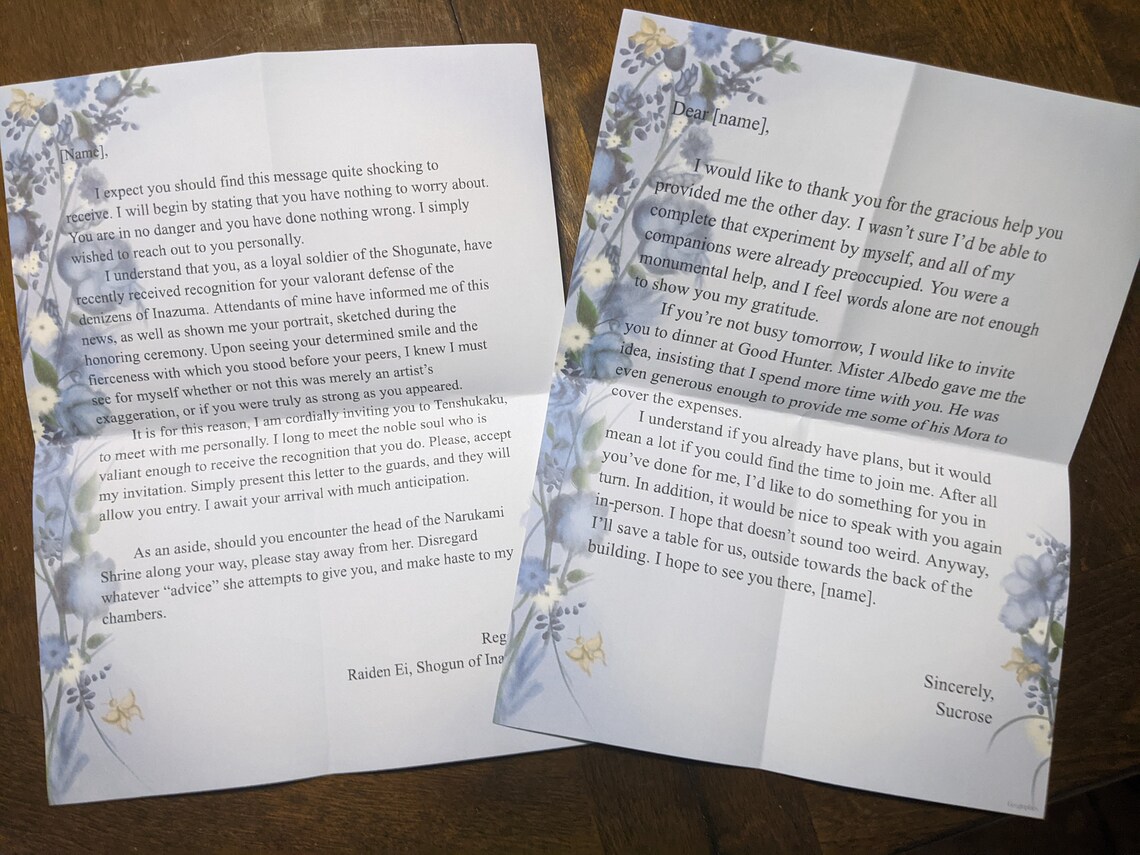 [Name],
I expect you should find this message quite shocking to
receive. I will begin by stating that you have nothing to worry about.
You are in no danger and you have done nothing wrong. I simply
wished to reach out to you personally.
I understand that you, as a loyal soldier of the Shogunate, have
recently received recognition for your valorant defense of the
denizens of Inazuma. Attendants of mine have informed me of this
news, as well as shown me your portrait, sketched during the
honoring ceremony. Upon seeing your determined smile and the
fierceness with which you stood before your peers, I knew I must
see for myself whether or not this was merely an artist's
exaggeration, or if you were truly as strong as you appeared.
It is for this reason, I am cordially inviting you to Tenshukaku,
to meet with me personally. I long to meet the noble soul who is
valiant enough to receive the recognition that you do. Please, accept
my invitation. Simply present this letter to the guards, and they will
allow you entry. I await your arrival with much anticipation.
As an aside, should you encounter the head of the Narukami
Shrine along your way, please stay away from her. Disregard
whatever “advice” she attempts to give you, and make haste to my
chambers.
Reg
Raiden Ei, Shogun of Ina
Dear [name],
I would like to thank you for the gracious help you
provided me the other day. I wasn't sure I'd be able to
complete that experiment by myself, and all of my
companions were already preoccupied. You were a
monumental help, and I feel words alone are not enough
to show you my gratitude.
If you're not busy tomorrow, I would like to invite
you to dinner at Good Hunter. Mister Albedo gave me the
idea, insisting that I spend more time with you. He was
even generous enough to provide me some of his Mora to
cover the expenses.
I understand if you already have plans, but it would
mean a lot if you could find the time to join me. After all
you've done for me, I'd like to do something for you in
turn. In addition, it would be nice to speak with you again
in-person. I hope that doesn't sound too weird. Anyway,
I'll save a table for us, outside towards the back of the
building. I hope to see you there, [name].
Sincerely,
Sucrose